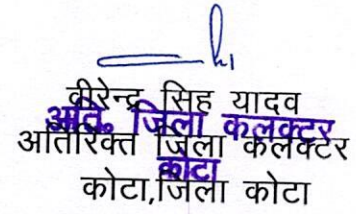 वीरेन्द्र सिंह यादव
अति० जिला कलक्टर
अतिरिक्त जिला कलक्टर
कोटा
कोटा,जिला कोटा